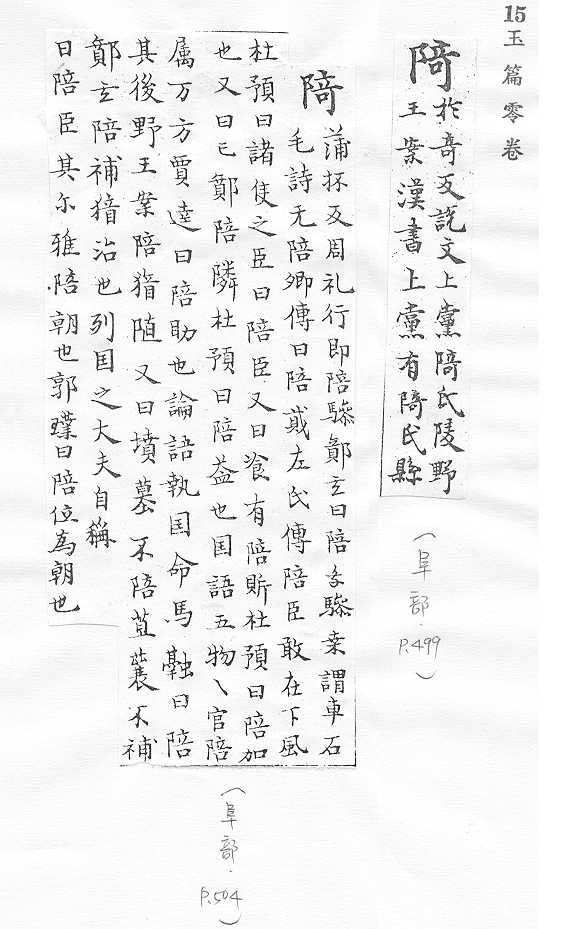 15玉篇零卷
陭 於奇反說文上黨陭氏陵野
王案漢書上黨有陭氏縣
(阜部. P.499)
陭 蒲抔反周礼行即陪驂鄭玄曰陪乗驂乗謂車右
毛詩无陪卿傳曰陪貳左氏傳陪臣敢在下風
杜預曰諸侯之臣曰陪臣又曰飡有陪鼎杜預曰陪加
也又曰已鄭陪隣杜預曰陪益也国語五物〻官陪
属万方賈逵曰陪助也論語執国命馬融曰陪
其後野王案陪猶随又曰墳墓不陪苴蘘不補
鄭玄陪補猶治也列国之大夫自稱
曰陪臣其尓雅陪朝也郭璞曰陪位為朝也
(阜部. P.504)